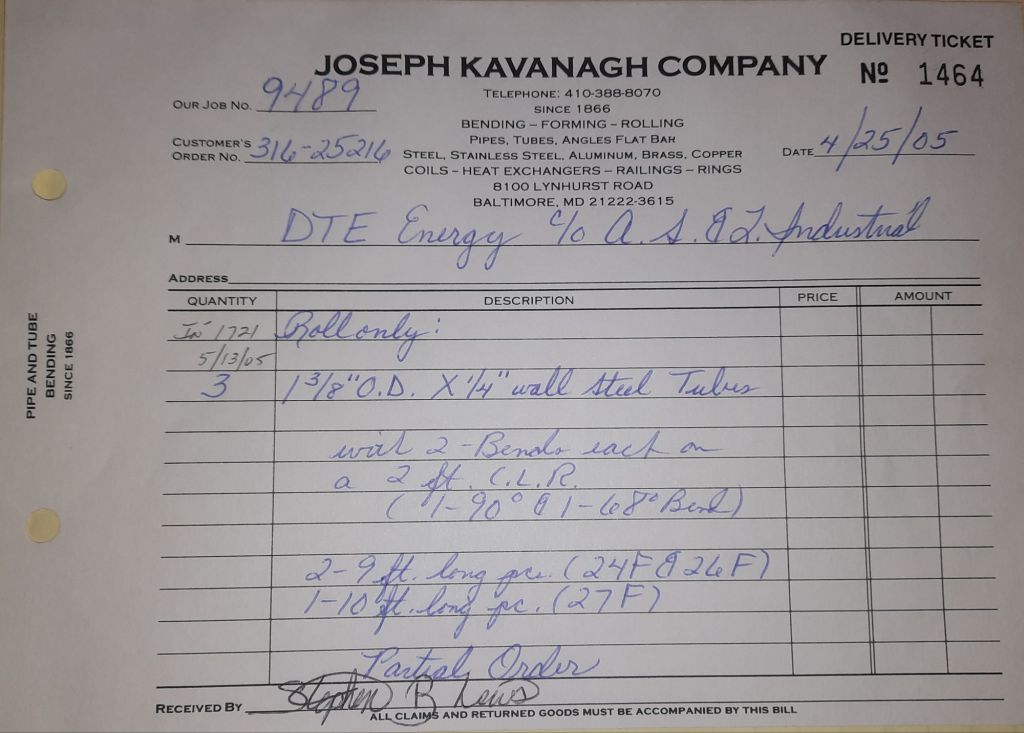 DELIVERY TICKET
JOSEPH KAVANAGH COMPANY
Nº 1464
TELEPHONE: 410-388-8070
SINCE 1866
OUR JOB NO. 9489
BENDING – FORMING – ROLLING
PIPES, TUBES, ANGLES FLAT BAR
CUSTOMER'S ORDER NO. 316-25216
STEEL, STAINLESS STEEL, ALUMINUM, BRASS, COPPER
DATE 4/25/05
COILS – HEAT EXCHANGERS – RAILINGS – RINGS
8100 LYNHURST ROAD
BALTIMORE, MD 21222-3615
M DTE Energy c/o A. S. & I. Industrial
ADDRESS
QUANTITY DESCRIPTION PRICE AMOUNT
In 1721 Roll only:
5/13/05
3 1 3/8" O.D. X 1/4" wall Steel Tubes
with 2-Bends each on
a 2 ft. C.L.R.
(1-90° & 1-68° Bend)
2-9 ft. long pcs. (24F & 26F)
1-10 ft. long pc. (27F)
Partial Order
RECEIVED BY Stephen R Lewis
ALL CLAIMS AND RETURNED GOODS MUST BE ACCOMPANIED BY THIS BILL
PIPE AND TUBE
BENDING
SINCE 1866